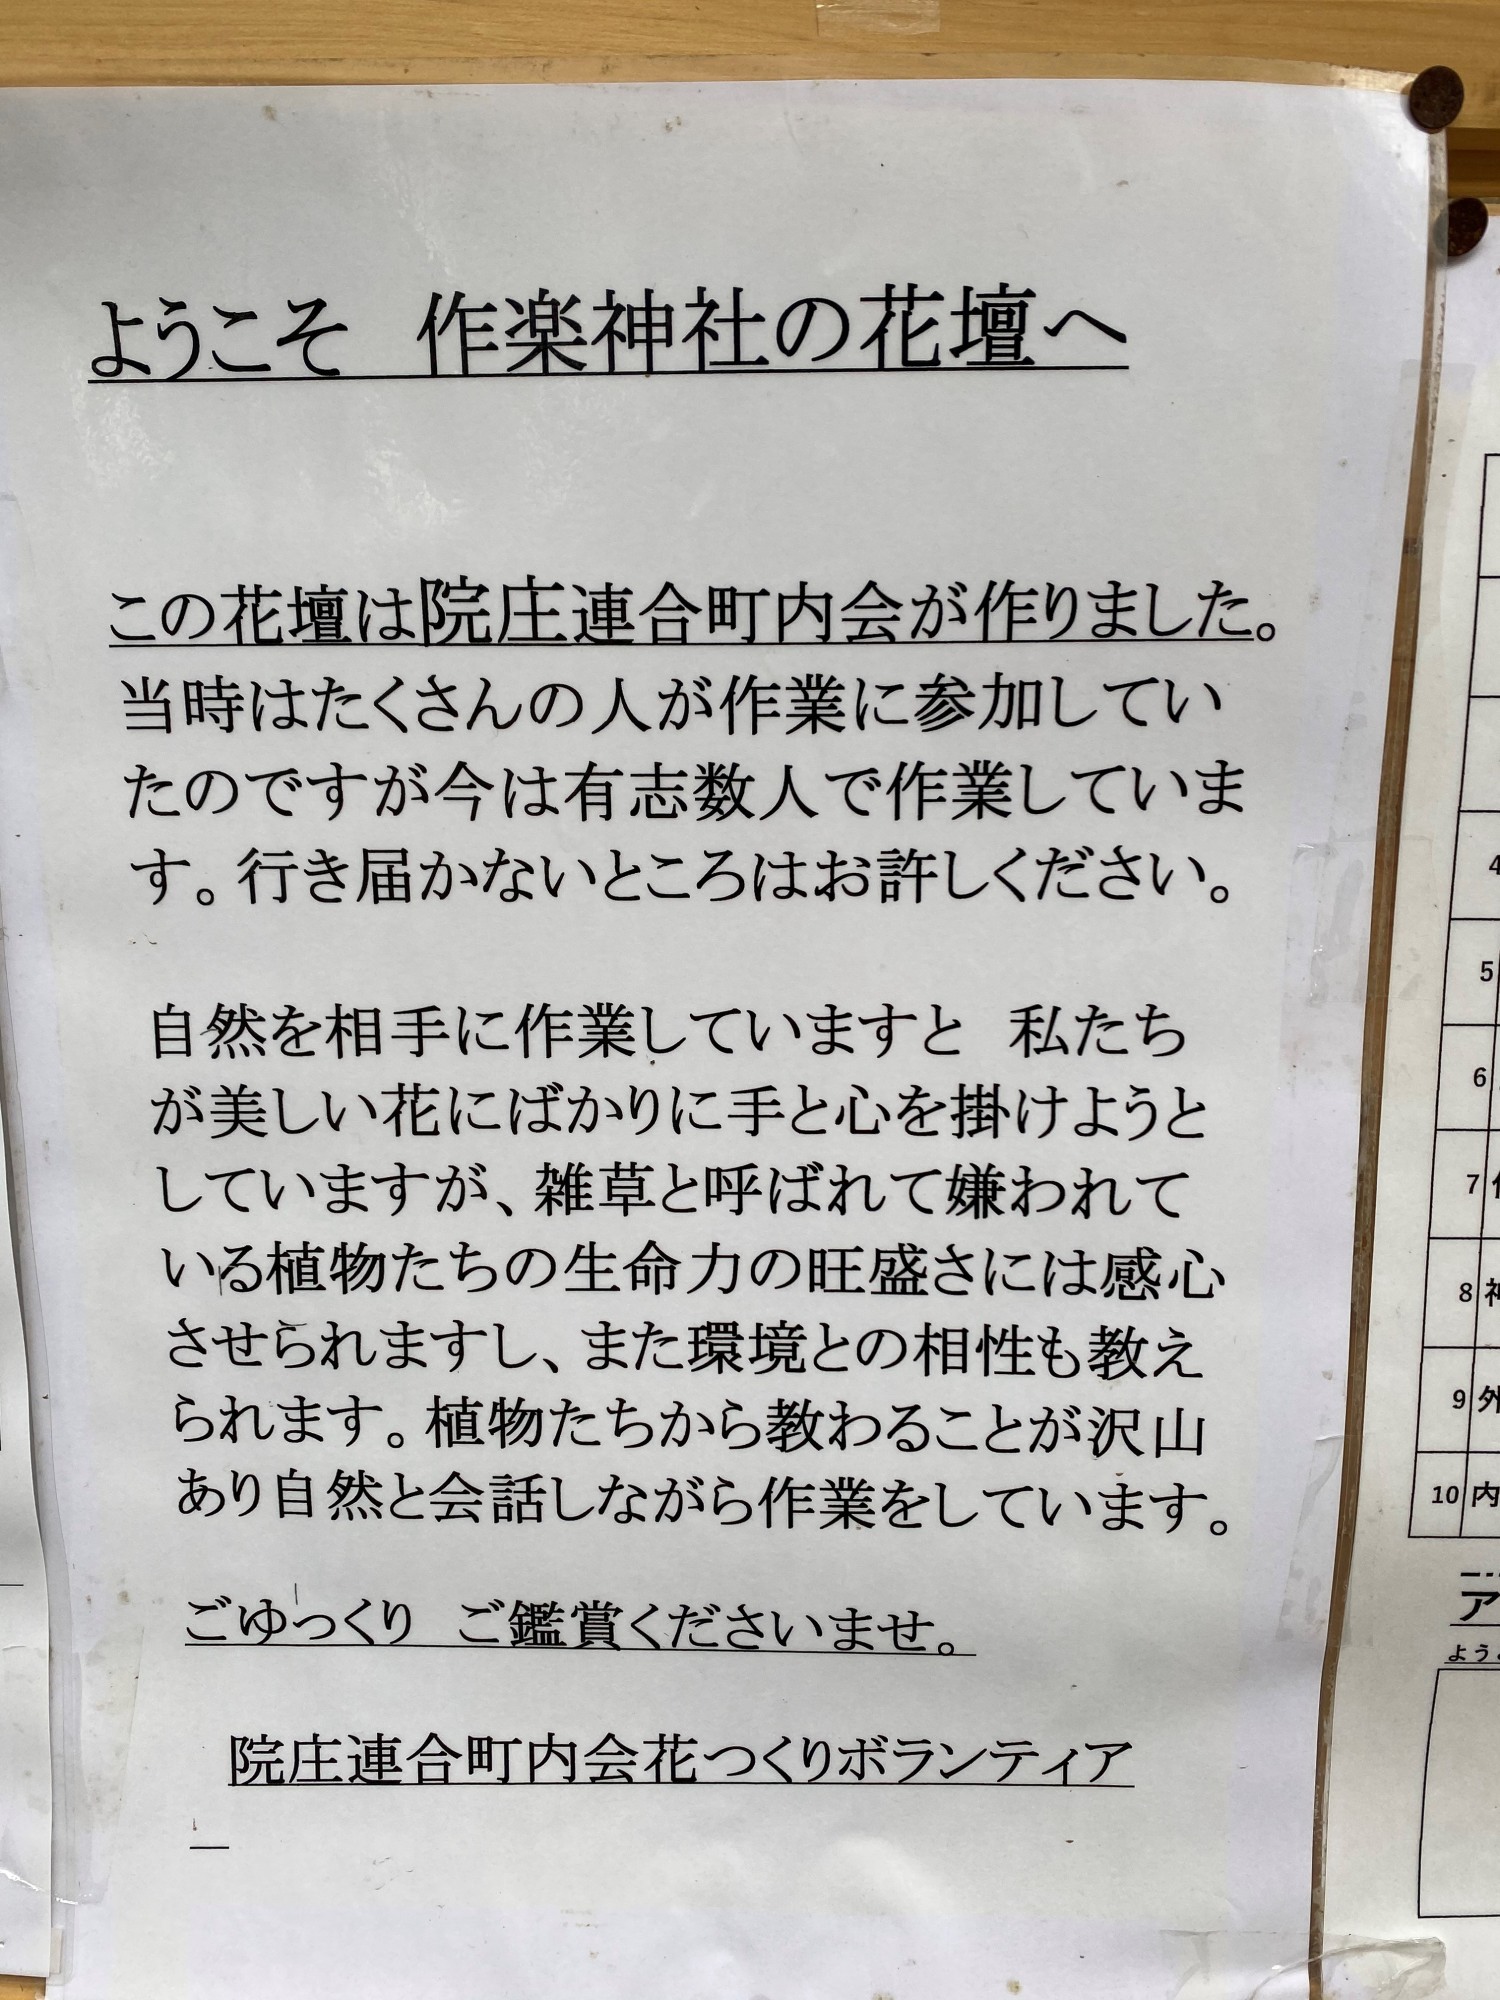 ようこそ　作楽神社の花壇へ
この花壇は院庄連合町内会が作りました。
当時はたくさんの人が作業に参加してい
たのですが今は有志数人で作業していま
す。行き届かないところはお許しください。
自然を相手に作業していますと　私たち
が美しい花にばかりに手と心を掛けようと
していますが、雑草と呼ばれて嫌われて
いる植物たちの生命力の旺盛さには感心
させられますし、また環境との相性も教え
られます。植物たちから教わることが沢山
あり自然と会話しながら作業をしています。
ごゆっくり　ご鑑賞くださいませ。
院庄連合町内会花つくりボランティア
4
5
6
7
8 神
9 外
10 内
ア
よう